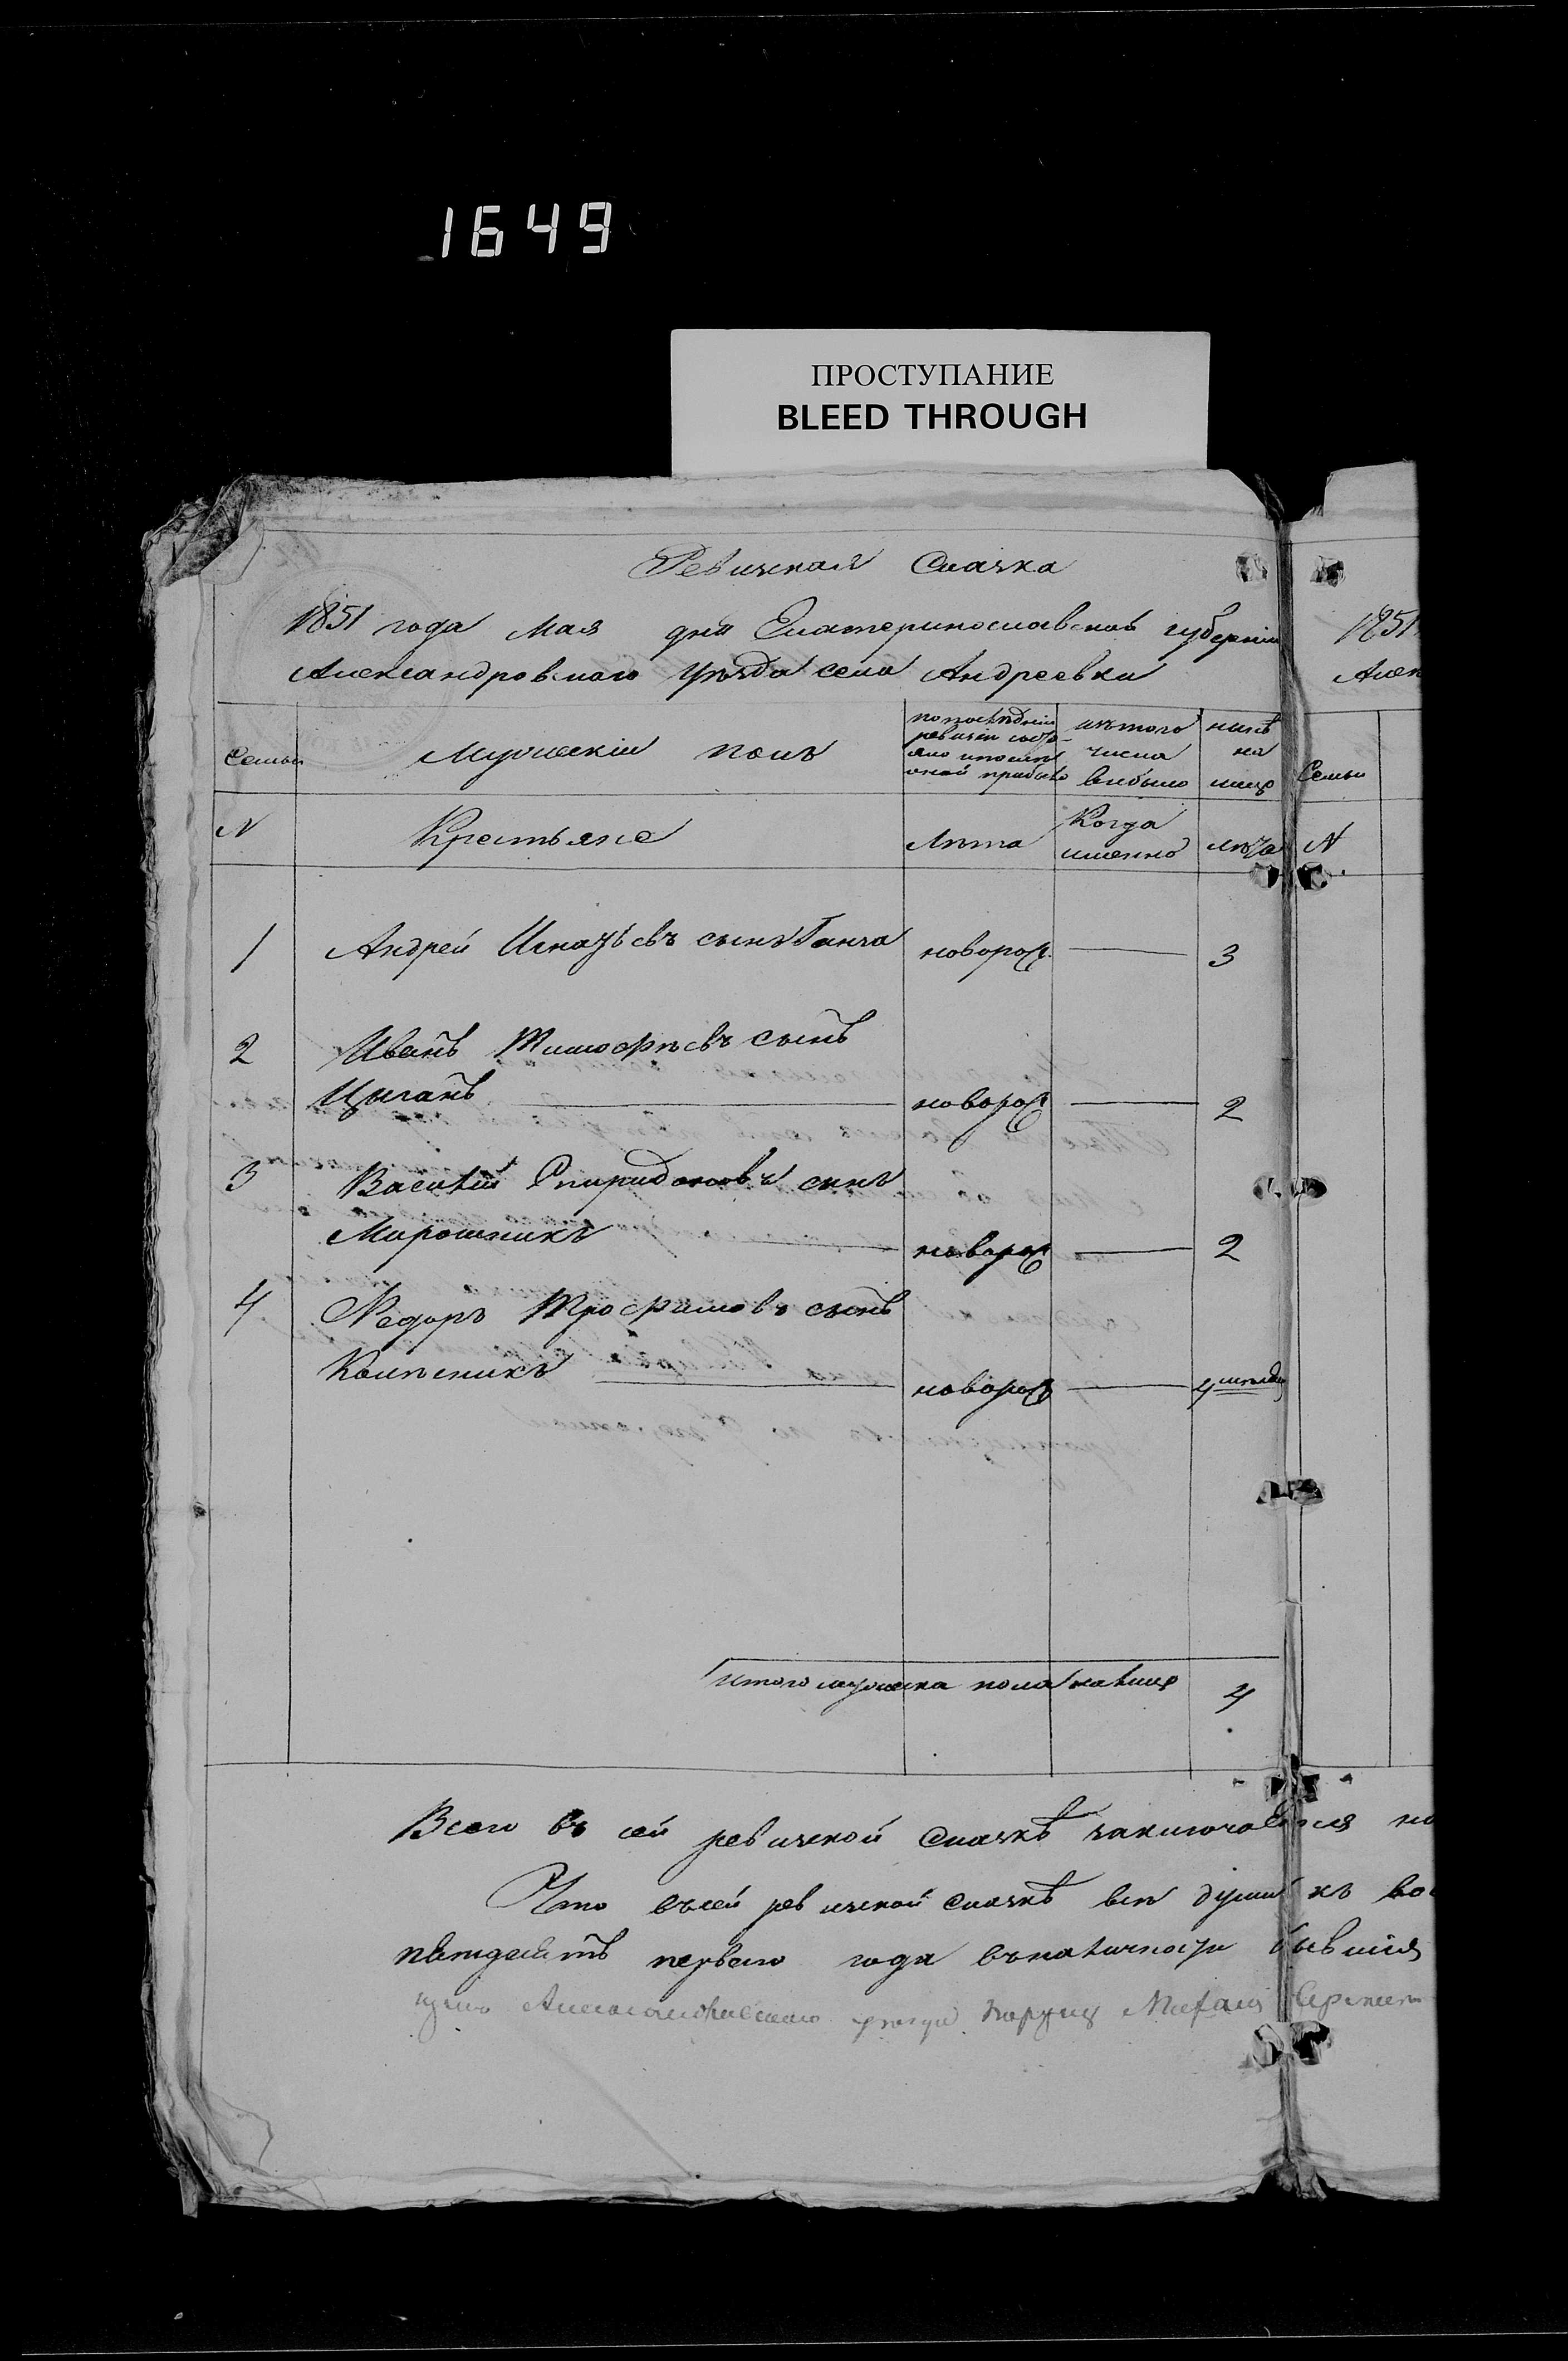 1649
ПРОСТУПАНИЕ
BLEED THROUGH
Ревизская Сказка
1851 года Мая дня Екатеринославской губернии
Александровскаго уѣзда села Андреевки
1851
Алек
Семьи
Мужескій полъ
по послѣдней ревизіи состояло и послѣ оной прибыло
изъ того числа выбыло
нынѣ на лицо
Семьи
N
Крестьяне
Лѣта
Когда именно
лѣта
N
1 Андрей Игнатьевъ сынъ Ганжа новорож. — 3
2 Иванъ Тимофѣевъ сынъ
Цыганъ — новорож — 2
3 Василій Спиридоновъ сынъ
Мирошникъ — новорож — 2
4 Федоръ Трофимовъ сынъ
Колѣсникъ — новорож — 4 мѣсяц
Итого мужеска пола налицо 4
Всего въ сей ревизской Сказкѣ заключается на
Что въ сей ревизской Сказкѣ всѣ души къ во
пятдесятъ перваго года въ наличности бывшія
Александровскаго уѣзда